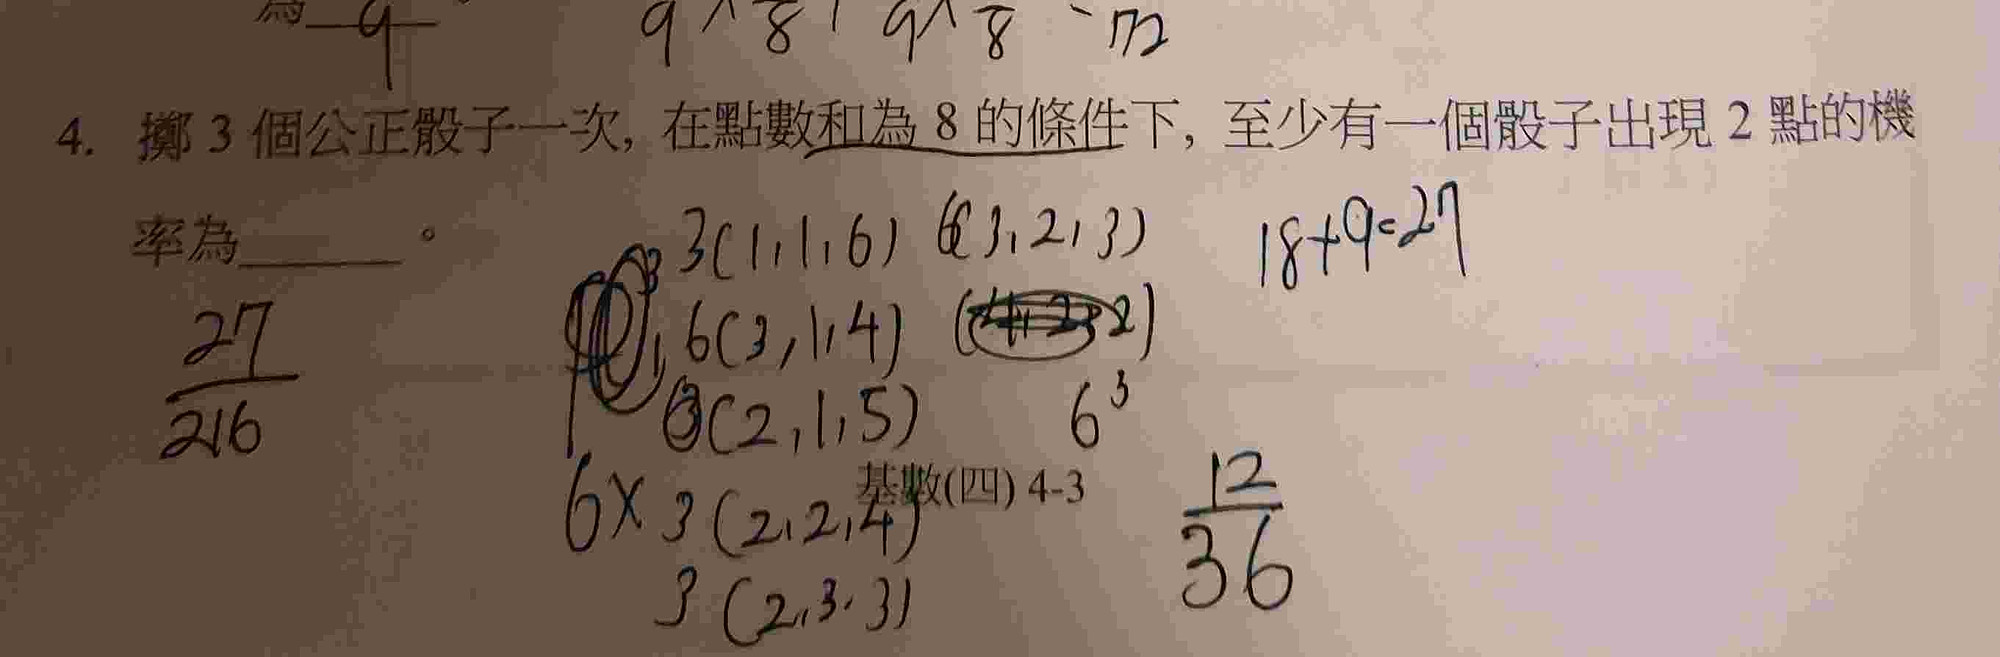 為 9
9 8 9 8 72
4. 擲 3 個公正骰子一次, 在點數和為 8 的條件下, 至少有一個骰子出現 2 點的機
率為______。
3(1,1,6) (3,2,3) 18+9=27
6(3,1,4)
(2,1,5) 6³
27/216
基數(四) 4-3
6× 3(2,2,4) 12/36
3(2,3,3)